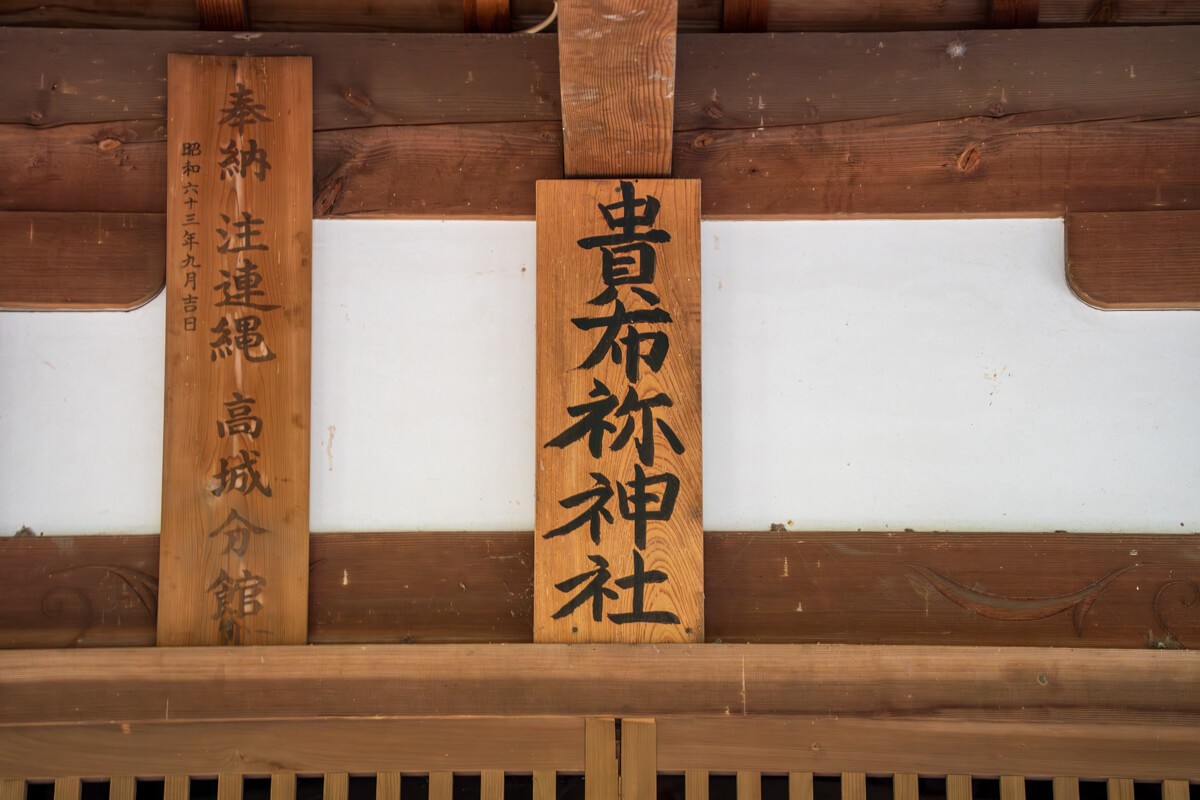 貴布祢神社
奉納 注連縄 高城分館
昭和六十三年九月吉日